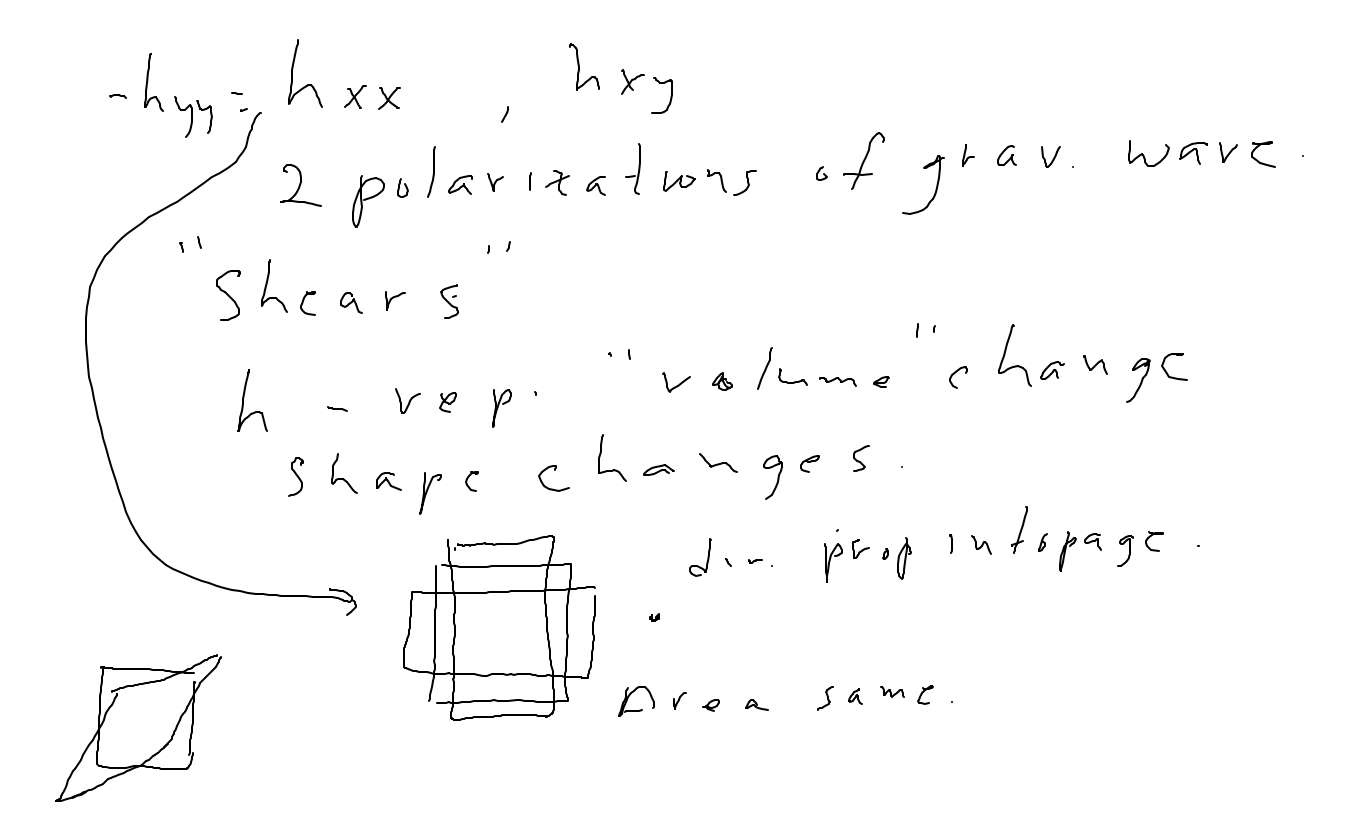 -hyy = hxx , hxy
2 polarizations of grav. wave.
"Shears"
h - rep. "volume" change
shape changes.
dir. prop into page.
Area same.